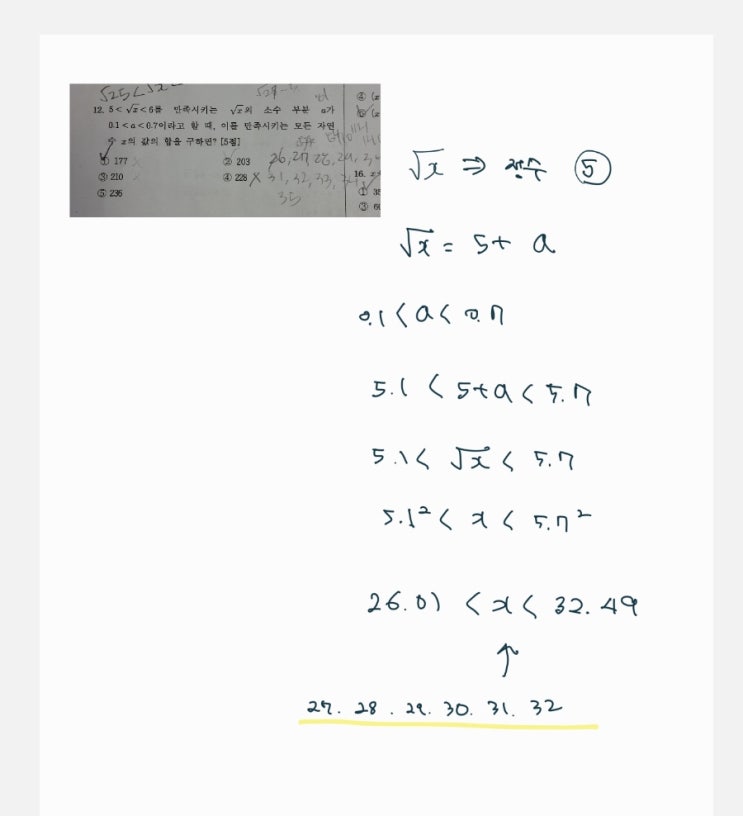 √25 <
12. 5 < √x < 6를 만족시키는 √x의 소수 부분 a가
0.1 < a < 0.7이라고 할 때, 이를 만족시키는 모든 자연
수 x의 값의 합을 구하면? [5점]
① 177 ② 203
③ 210 ④ 228
⑤ 236
26, 27, 28, 29,
31, 32, 33,
35
16.
① 3
③ 6
√x ⇒ 정수 ⑤
√x = 5 + a
0.1 < a < 0.7
5.1 < 5+a < 5.7
5.1 < √x < 5.7
5.1² < x < 5.7²
26.01 < x < 32.49
↑
27. 28. 29. 30. 31. 32